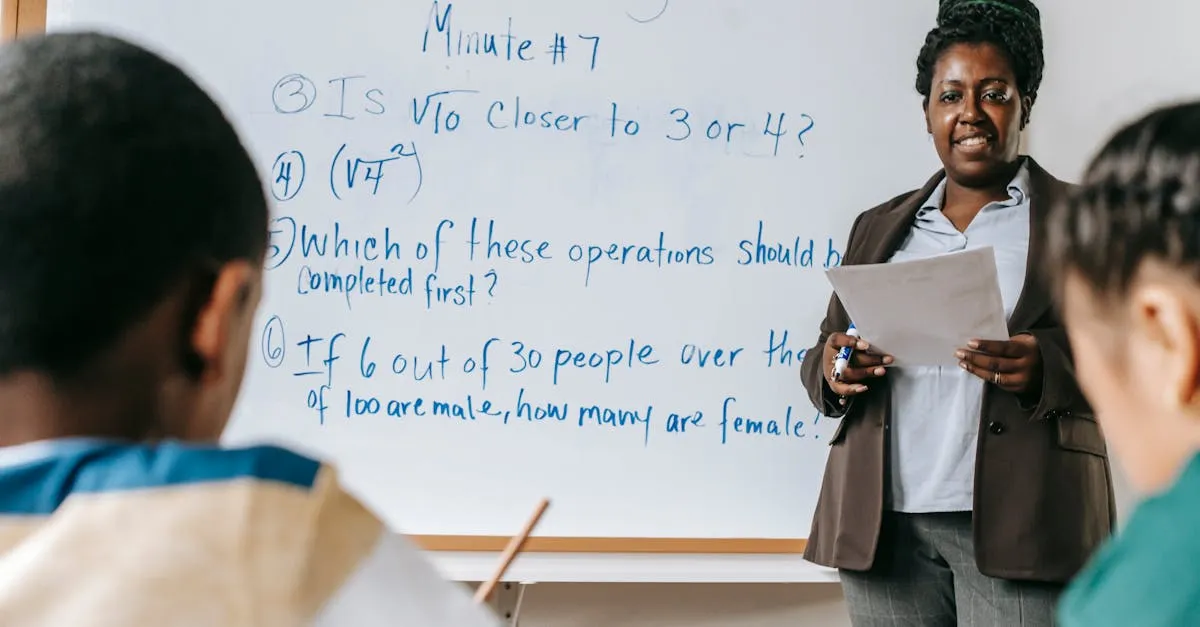 Minute #7
③ Is √10 Closer to 3 or 4?
④ (√4²)
5) Which of these operations should
Completed first?
⑥ If 6 out of 30 people over the
of 100 are male, how many are female?